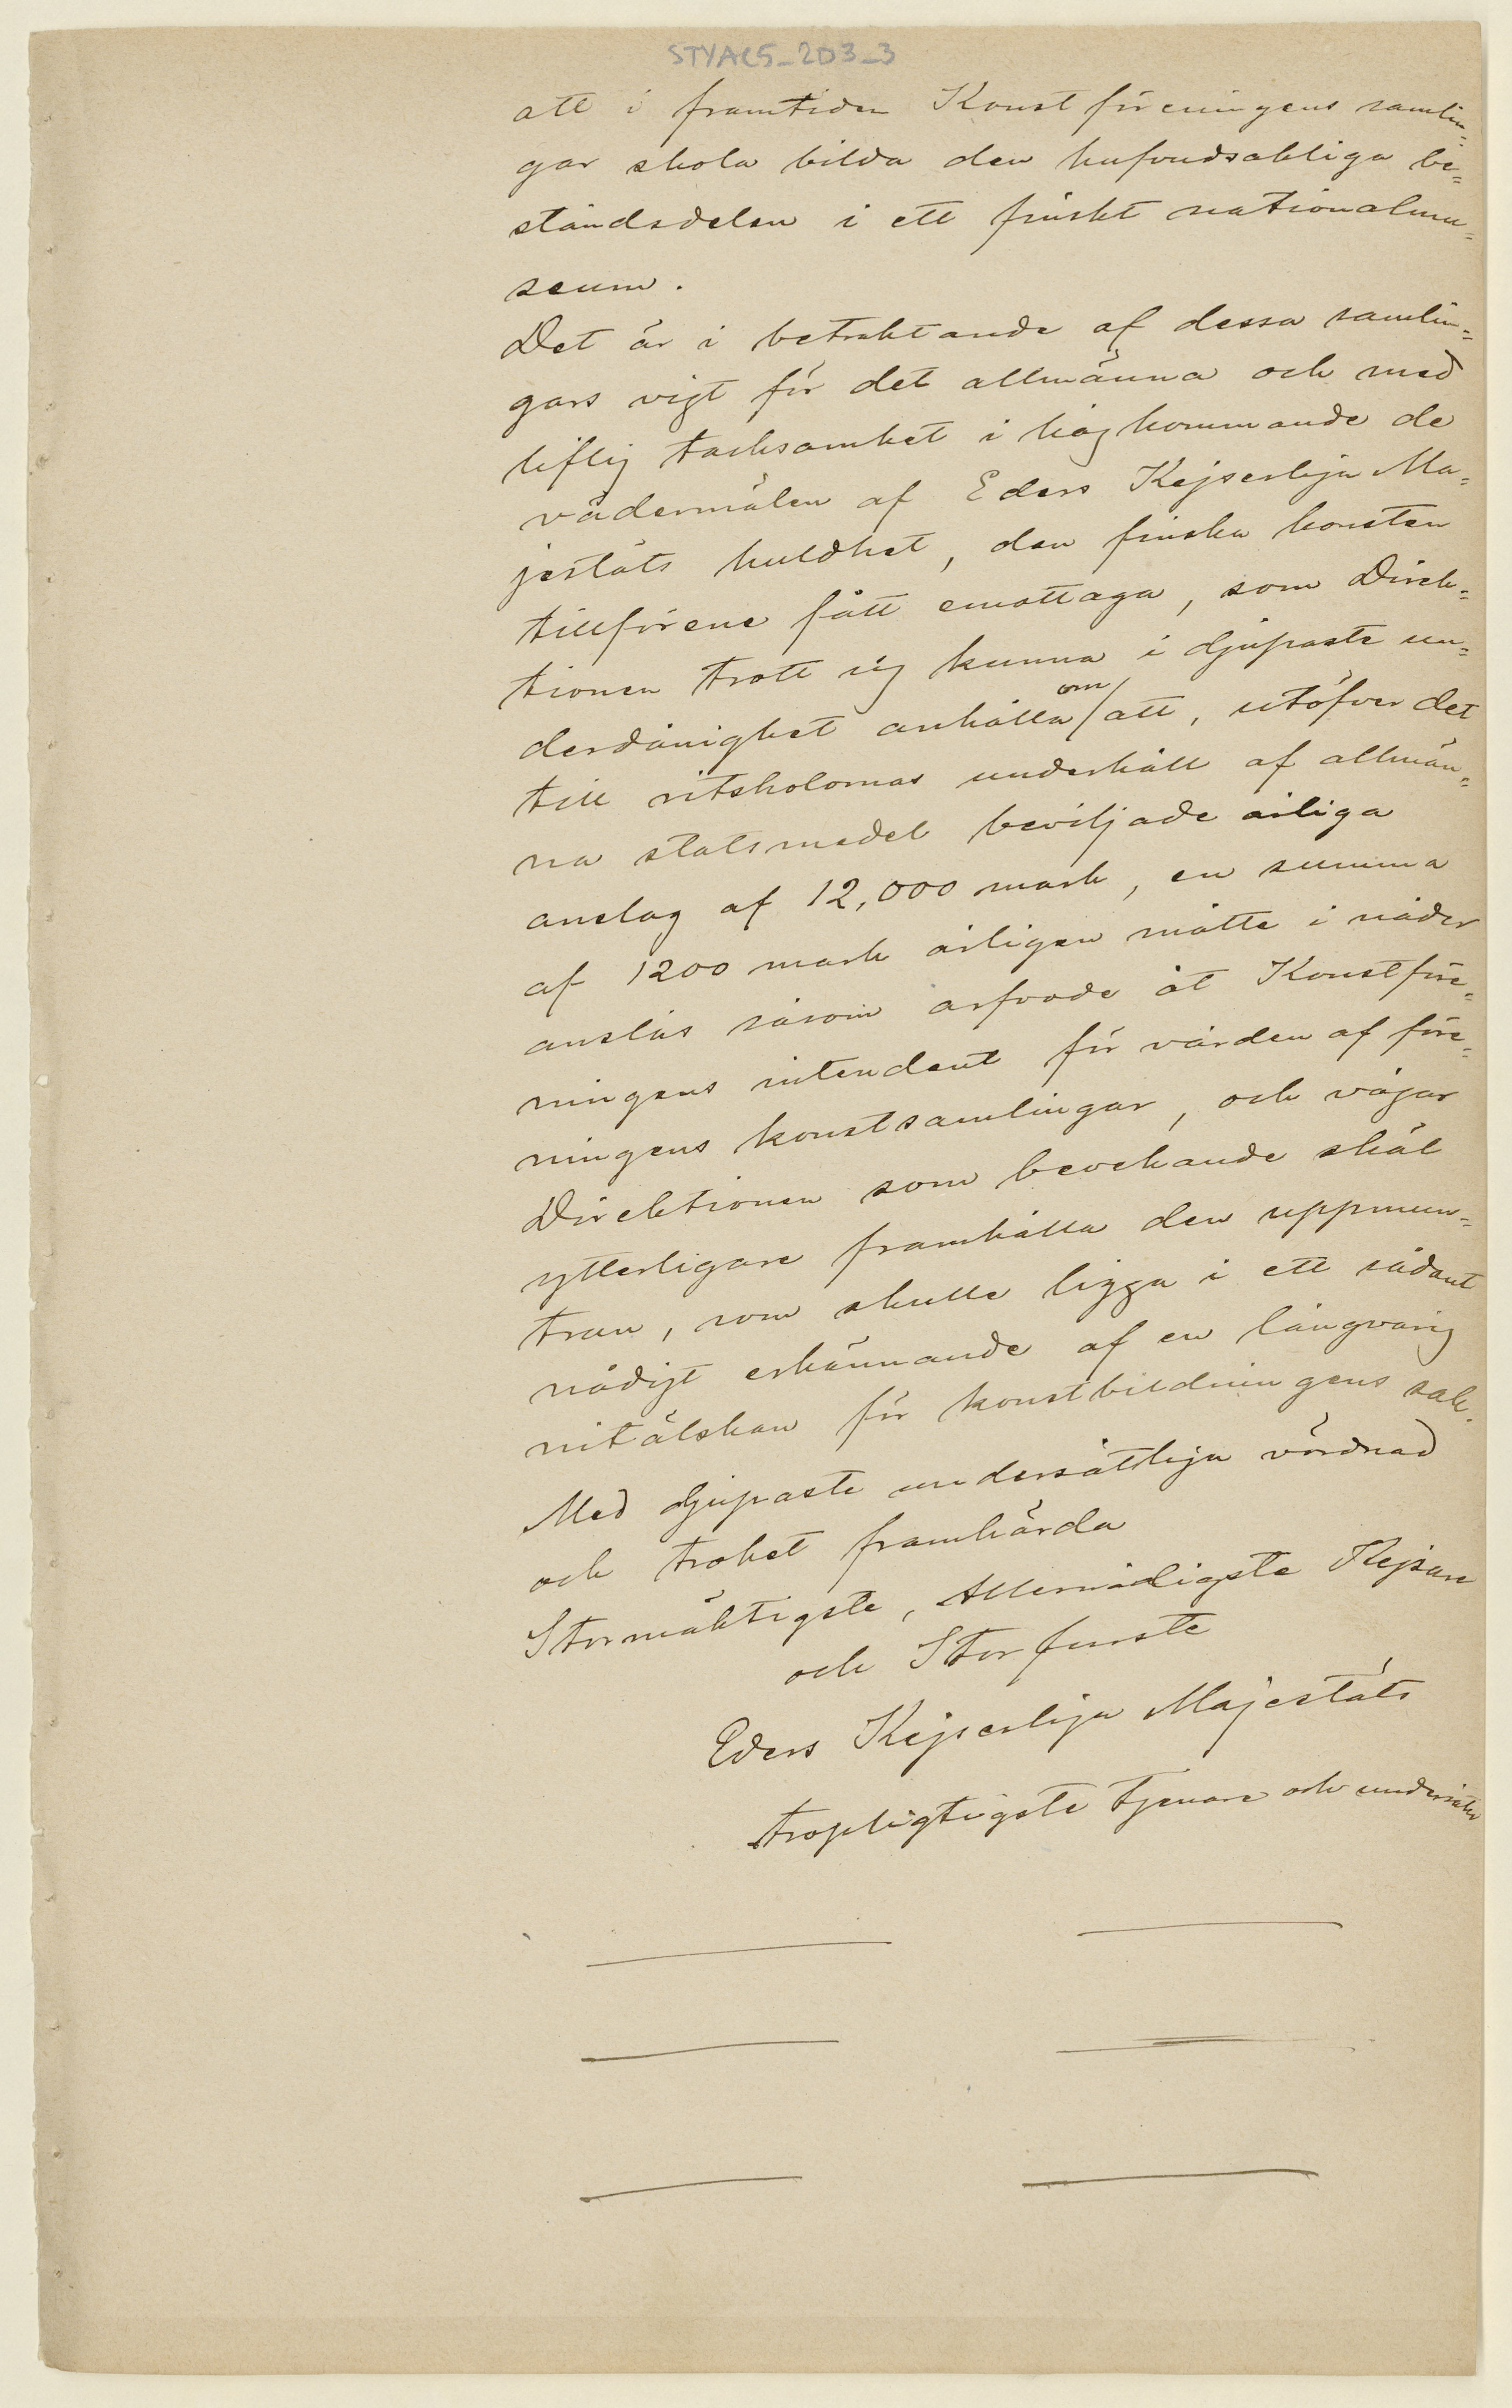 STYAC5_203_3
att i framtiden Konstföreningens samlin=
gar skola bilda den hufvudsakliga be=
ståndsdelen i ett finskt nationalmu=
seum.
Det är i betraktande af dessa samlin=
gars vigt för det allmänna och med
liflig tacksamhet i hågkommande de
vådermålen af Eders Kejserliga Ma=
jestäts huldhet, den finska konsten
tillförene fått emottaga, som Direk=
tionen trott sig kunna i djupaste un=
derdånighet anhålla om att, utöfver det
till ritskolornas underhåll af allmän=
na statsmedel beviljade årliga
anslag af 12,000 mark, en summa
af 1200 mark årligen måtte i nåder
anslås såsom arfvode åt Konstföre=
ningens intendent för vården af före=
ningens konstsamlingar, och vågar
Direktionen som bevekande skäl
ytterligare framhålla den uppmun=
tran, som skulle ligga i ett sådant
nådigt erkännande af en långvarig
nitälskan för konstbildningens sak.
Med djupaste undersåtliga vördnad
och trohet framhärda
Stormäktigste, Allernådigste Kejsare
och Storfurste
Eders Kejserliga Majestäts
tropligtigste tjenare och undersåtar